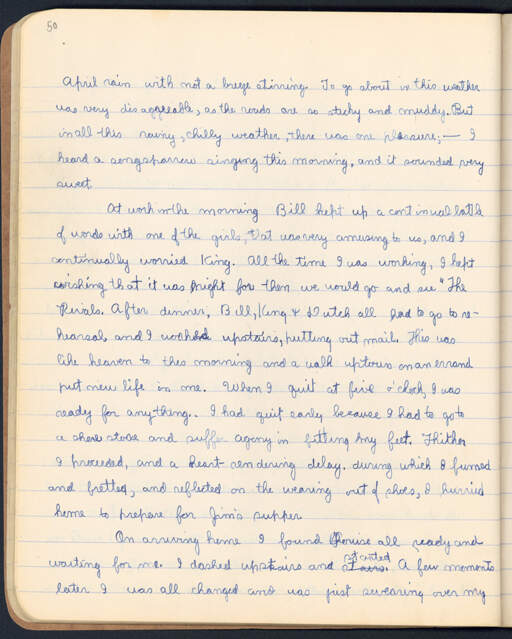 50
April rain with not a breeze stirring. To go about in this weather
was very disagreeable, as the roads are so sticky and muddy. But
in all this rainy, chilly weather, there was one pleasure, — I
heard a song sparrow singing this morning, and it sounded very
sweet
At work in the morning Bill kept up a continual battle
of words with one of the girls, that was very amusing to us, and I
continually worried King. All the time I was working, I kept
wishing that it was night for then we would go and see "The
Rivals. After dinner, Bill, King & Dutch all had to go to re-
hearsal, and I worked upstairs, putting out mail. This was
like heaven to this morning and a walk uptown on an errand
put new life in me. When I quit at five o'clock, I was
ready for anything. I had quit early because I had to go to
a shoe store and suffer agony in fitting my feet. Thither
I proceeded, and a heart-rendering delay, during which I fumed
and fretted, and reflected on the wearing out of shoes, I hurried
home to prepare for Jim's supper
On arriving home I found Louise all ready and
waiting for me. I dashed upstairs and started. A few moments
later I was all changed and was just swearing over my